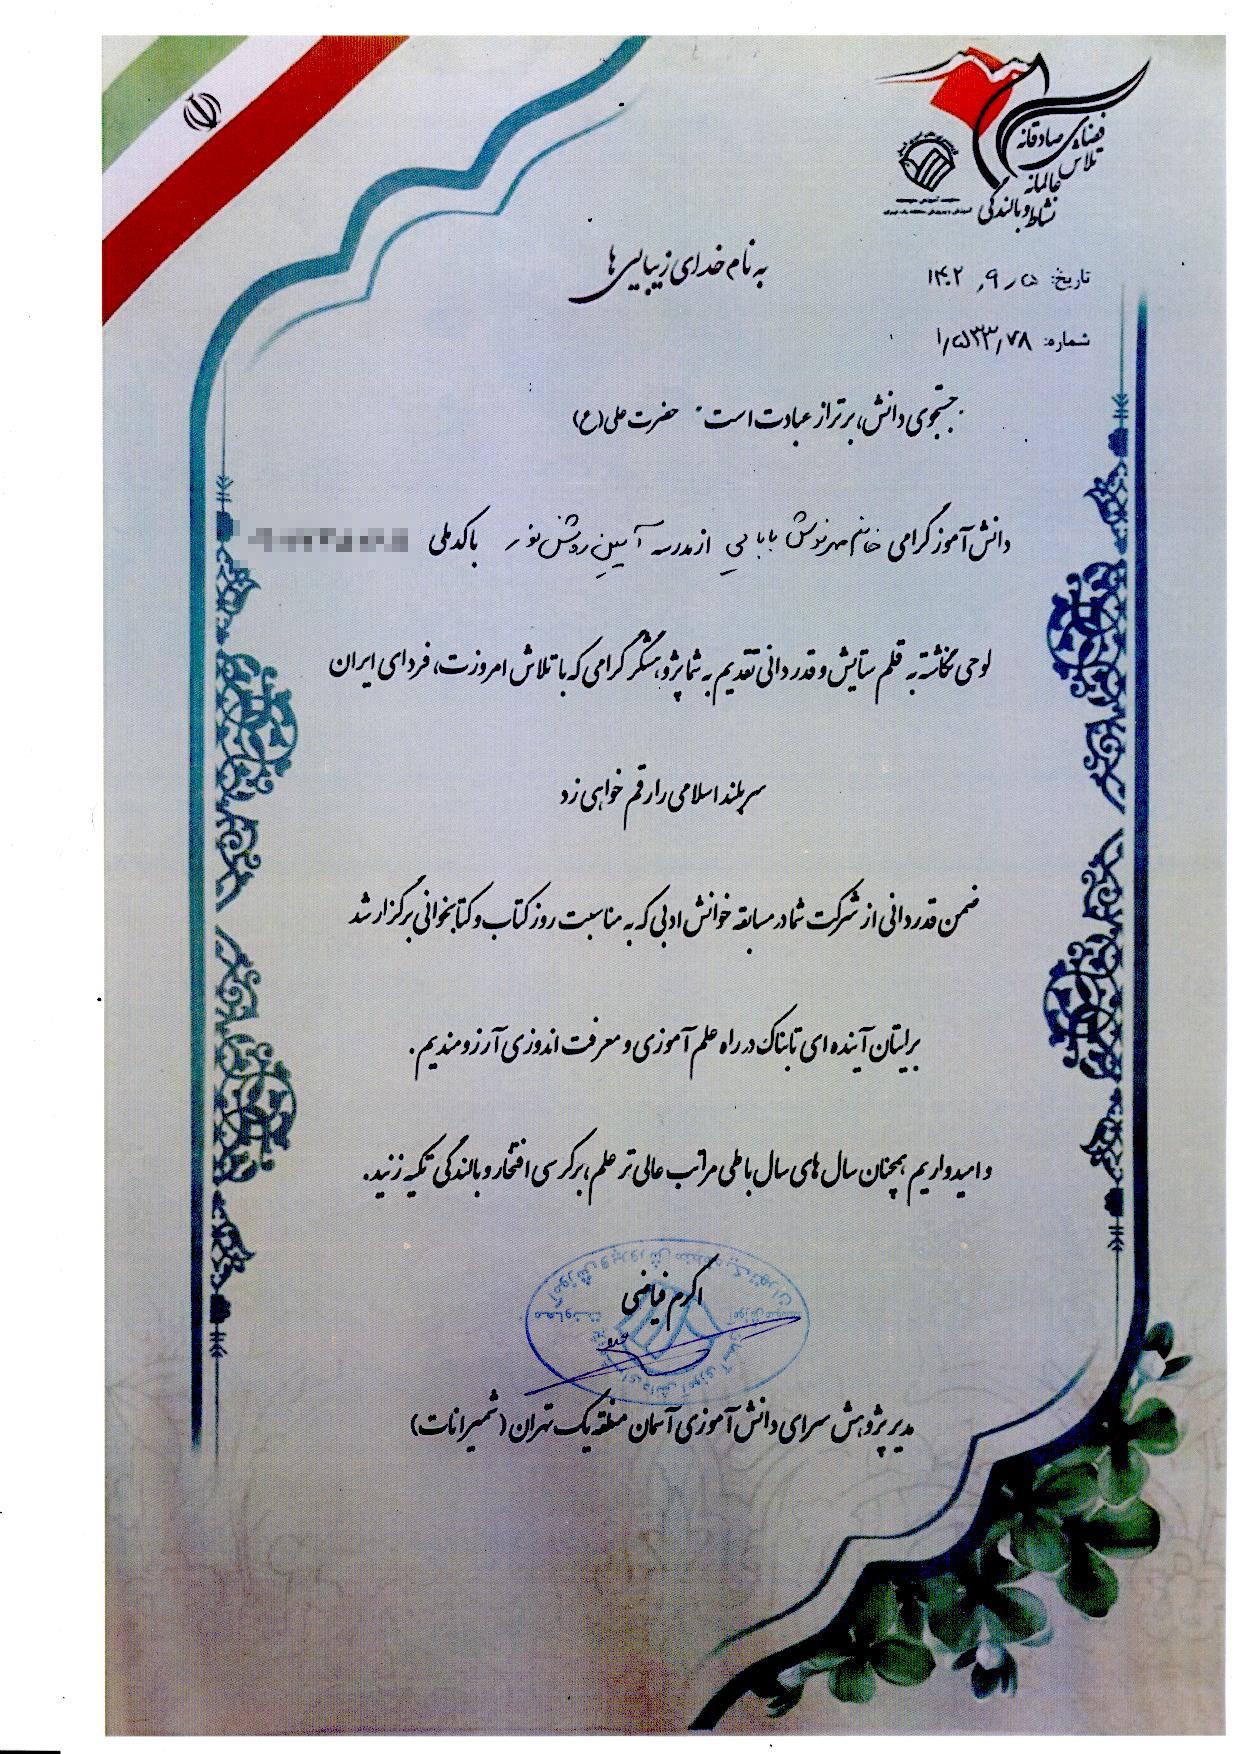 فضای صادقانه
تلاش عالمانه
نشاط و بالندگی
تاریخ: ۱۴۰۲,۹,۰۵
شماره: ۱٫۵۳۳٫۷۸
به نام خدای زیبایی ها
جستجوی دانش، برتر از عبادت است" حضرت علی(ع)
دانش آموز گرامی خانم مهرنوش بابایی از مدرسه آیین روشن نور با کد ملی
لوحی نگاشته به قلم ستایش و قدردانی تقدیم به شما پژوهشگر گرامی که با تلاش امروزت، فردای ایران
سربلند اسلامی را رقم خواهی زد
ضمن قدردانی از شرکت شما در مسابقه خوانش ادبی که به مناسبت روز کتاب و کتابخوانی برگزار شد
برایتان آینده ای تابناک در راه علم آموزی و معرفت اندوزی آرزومندیم.
و امیدواریم همچنان سال های سال با طی مراتب عالی تر علم، بر کرسی افتخار و بالندگی تکیه زنید.
اکرم فیاضی
مدیر پژوهش سرای دانش آموزی آسمان منطقه یک تهران (شمیرانات)